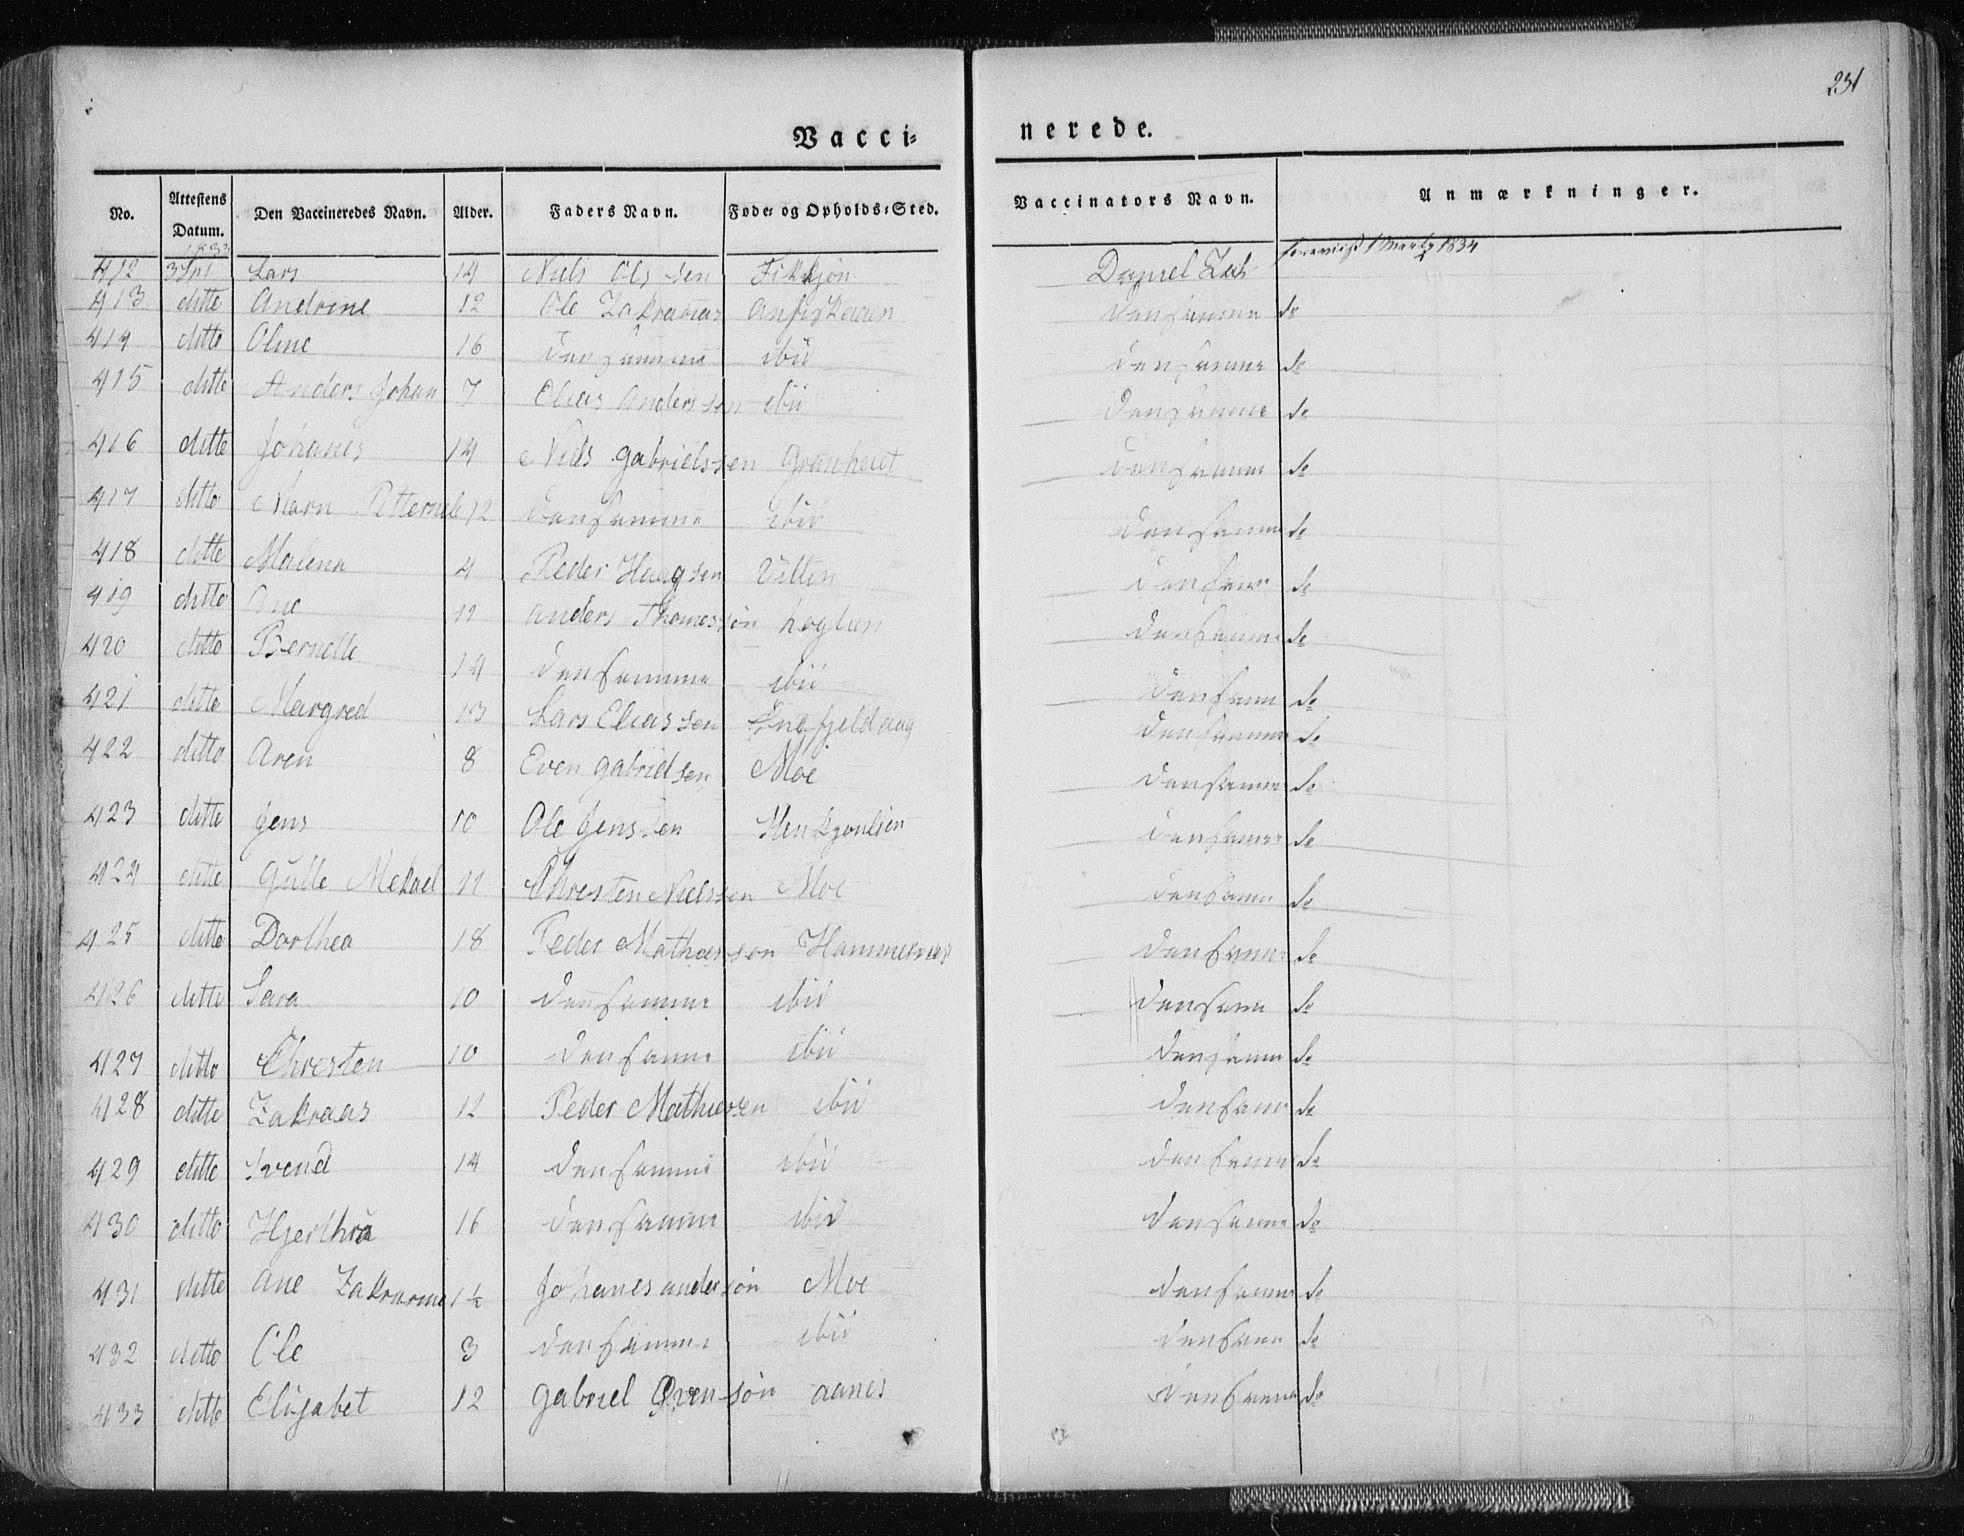 231
Vacci= nerede.
No. Attestens Datum. Den Vaccineredes Navn. Alder. Faders Navn. Føde= og Opholds=Sted. Vaccinators Navn. Anmærkninger.
1833 foreviist 1 Martz 1834
412 Lars 14 Niels Ols sen
413 ditto Andrine 12 Ole Zakrarias densamme do
414 ditto Oline 16 densamme ibid densamme do
415 ditto Anders Johan 7 Elias Anderssen ibid densamme do
416 ditto Johanes 14 Niels gabrielssen densamme do
417 ditto Marn 12 densamme ibid densamme do
418 ditto Malena 4 Peder Haagsen densamme do
419 ditto Ane anders Thomessøn hoglien densamme do
420 ditto Bernelle 14 densamme ibid densamme do
421 ditto Margred 13 Lars Eliassen densamme do
422 ditto Aren 8 Even gabrielsen Moe densamme do
423 ditto Jens 10 Ole Jenssen densamme do
424 ditto Gulle Mekael 11 Chresten Nielssen Moe densamme do
425 ditto Dorthea 18 Peder Mathiassøn Hammernes densamme do
426 ditto Sara 10 densamme ibid densamme do
427 ditto Chresten 10 densamme ibid densamme do
428 ditto Zakraas 12 Peder Mathiesen ibid densamme do
429 ditto Svend 14 densamme ibid densamme do
430 ditto 16 densamme ibid densamme do
431 ditto Ane Zakrarine 1½ Johanes andersøn Moe densamme do
432 ditto Ole 3 densamme ibid densamme do
433 ditto Elisabet 12 gabriel aanes densamme do